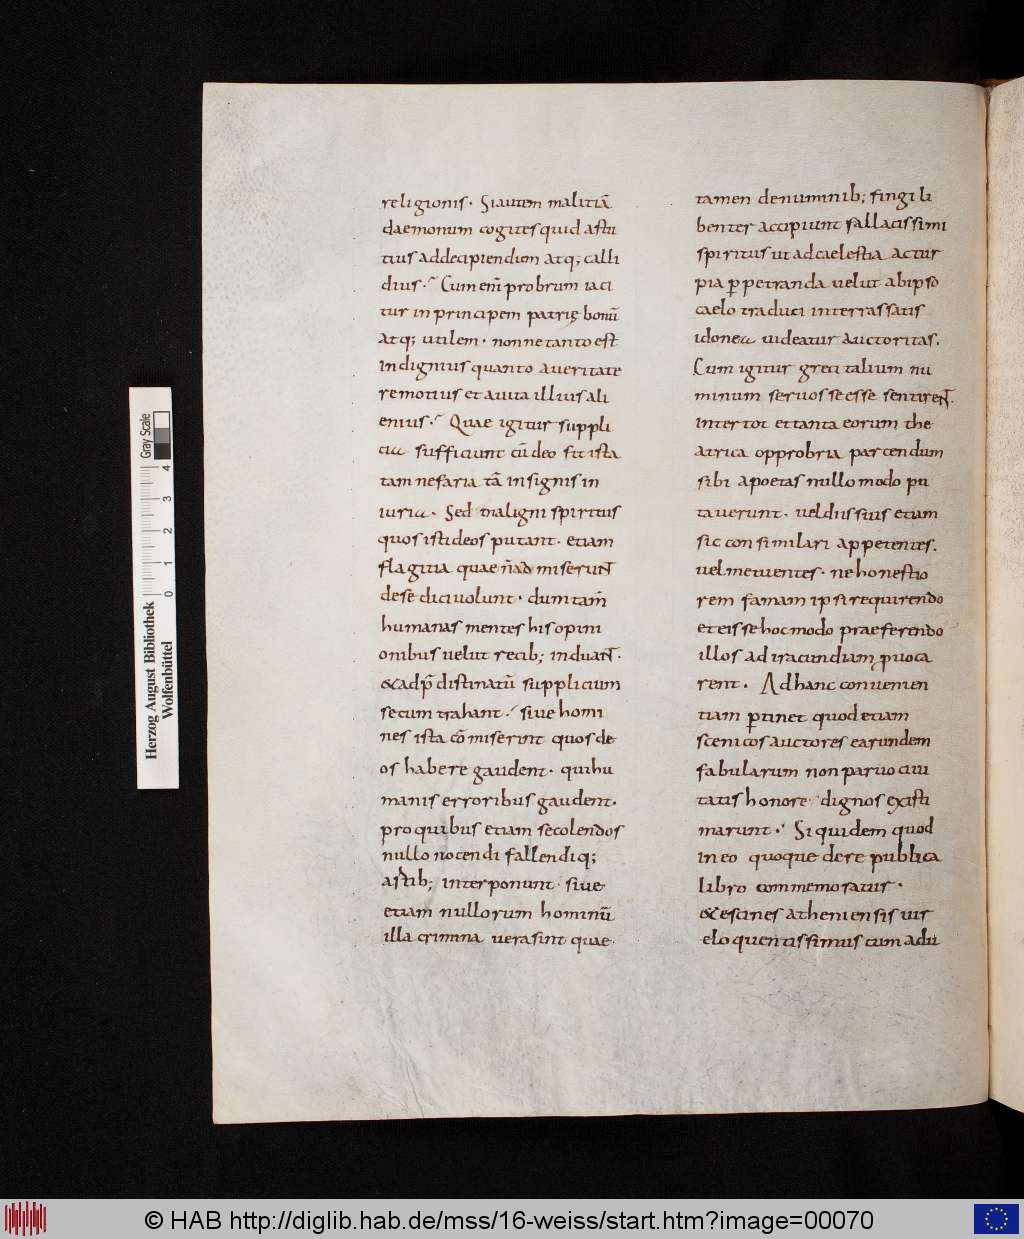 religionis. Siautem malitiā
daemonum cogites quid astu
tius addecipiendum atq; calli
dius. Cum enī probrum iaci
tur in principem patrię bonū
atq; utilem. nonne tanto est
indignius quanto aueritate
remotius et auita illius ali
enius. Quae igitur suppli
cia sufficiunt cū deo fit ista
tam nefaria tā insignis in
iuria. Sed maligni spiritus
quos isti deos putant. etiam
flagitia quae ñ admiserunt
dese dici uolunt. dum tam̄
humanas mentes his opini
onibus uelut retib; induant.
& adp̄destinatū supplicium
secum trahant. siue homi
nes ista cōmiserint quos de
os habere gaudent. quihu
manis erroribus gaudent.
pro quibus etiam secolendos
nullo nocendi fallendiq;
astib; interponunt. siue
etiam nullorum hominū
illa crimina uera sint quae.
tamen denuminib; fingi li
benter accipiunt fallacissimi
spiritus ut ad caelestia actur
pia ꝑpetranda uelut abipso
caelo traduci interras satis
idonea uideatur auctoritas.
Cum igitur greci talium nu
minum seruos se esse sentirent.
inter tot et tanta eorum the
atrica opprobria parcendum
sibi apoetas nullo modo pu
tauerunt. uel diis suis etiam
sic consimilari appetentes.
uel metuentes. ne honestio
rem famam ipsi requirendo
et eis se hoc modo praeferendo
illos ad iracundiam ꝓuoca
rent. Ad hanc conuenien
tiam ꝑtinet quod etiam
scenicos auctores earundem
fabularum non paruo ciui
tatis honore dignos existi
marunt. Siquidem quod
in eo quoque de re publica
libro commemoratur.
& escines atheniensis uir
eloquentissimus cum adu
Herzog August Bibliothek
Wolfenbüttel
0 1 2 3 4
Gray Scale
© HAB http://diglib.hab.de/mss/16-weiss/start.htm?image=00070